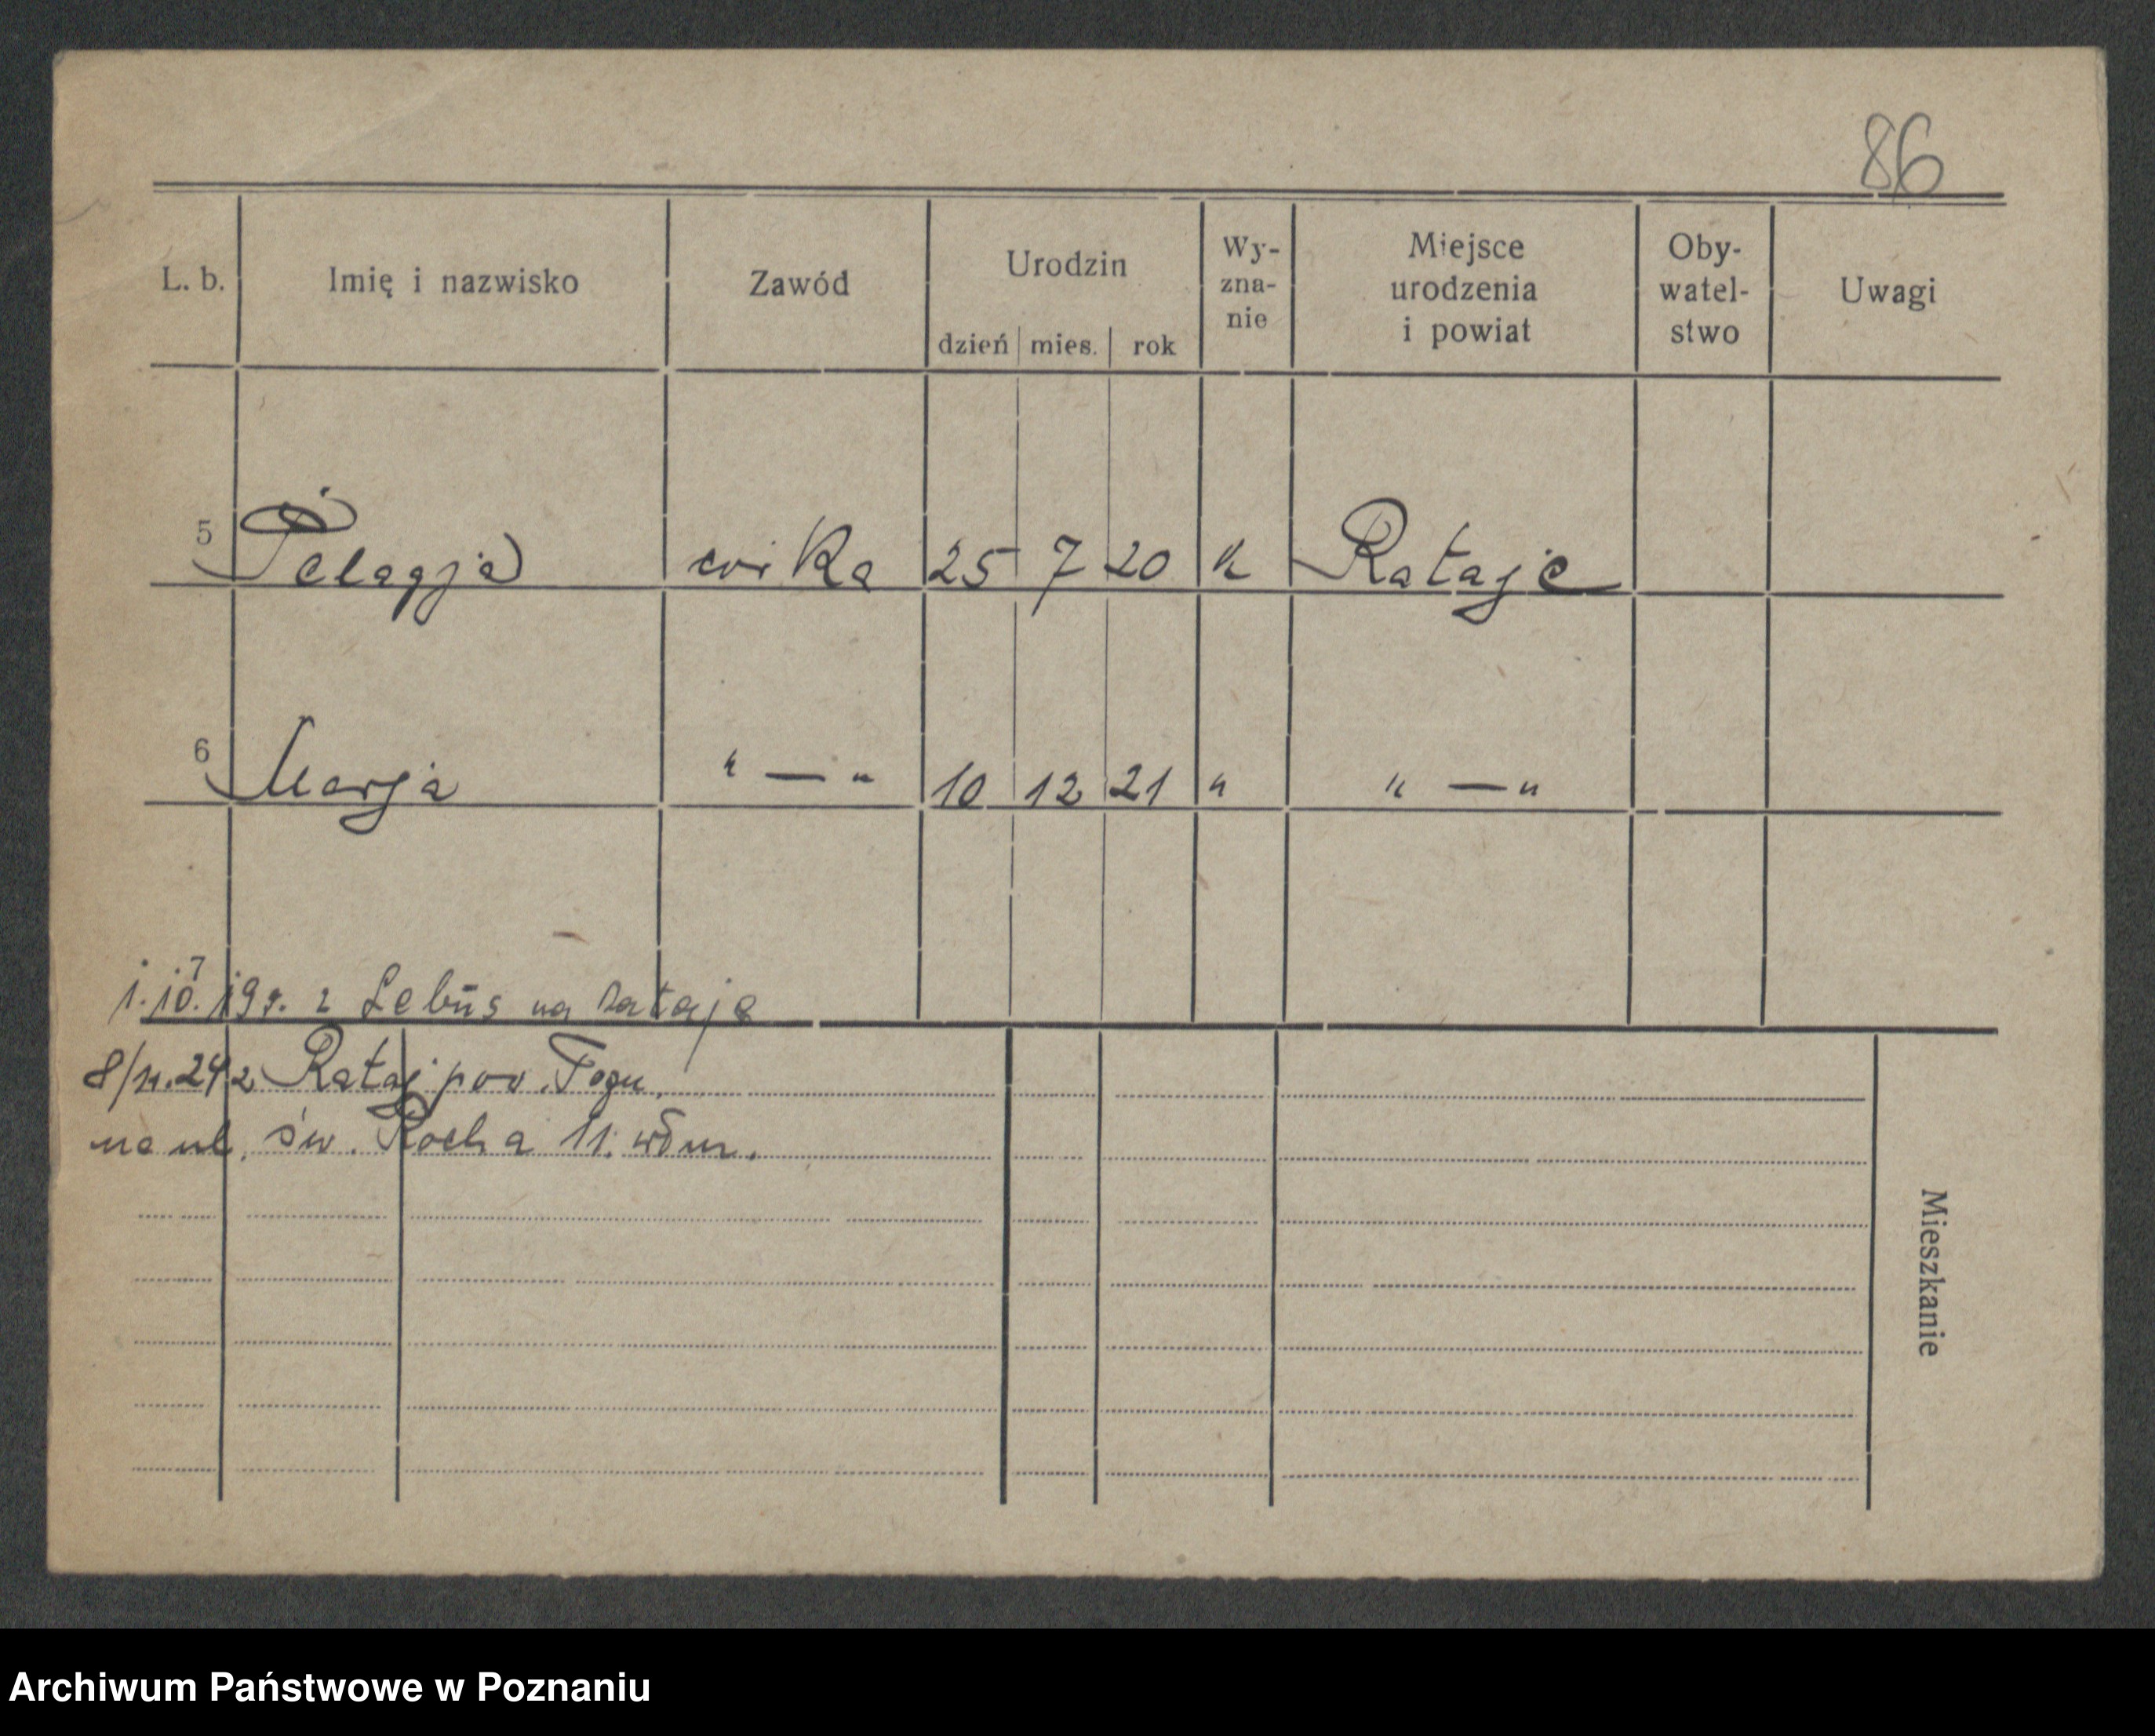 86
L. b. Imię i nazwisko Zawód Urodzin Wy-zna-nie Miejsce urodzenia i powiat Oby-watel-stwo Uwagi
dzień mies. rok
5 Pelagja córka 25 7 20 k Rataje
6 Marja " — " 10 12 21 " " — "
1. 10. 19 z Lebus na Rataje
8/11.24 z Rataj pow.
na ul. św. Rocha 11.
Mieszkanie
Archiwum Państwowe w Poznaniu